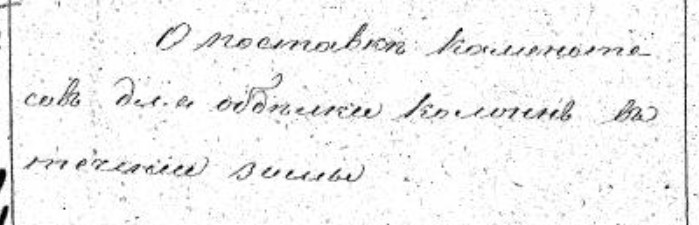 О поставкѣ каменоте-
совъ для обдѣлки колоннъ въ
теченіи зимы